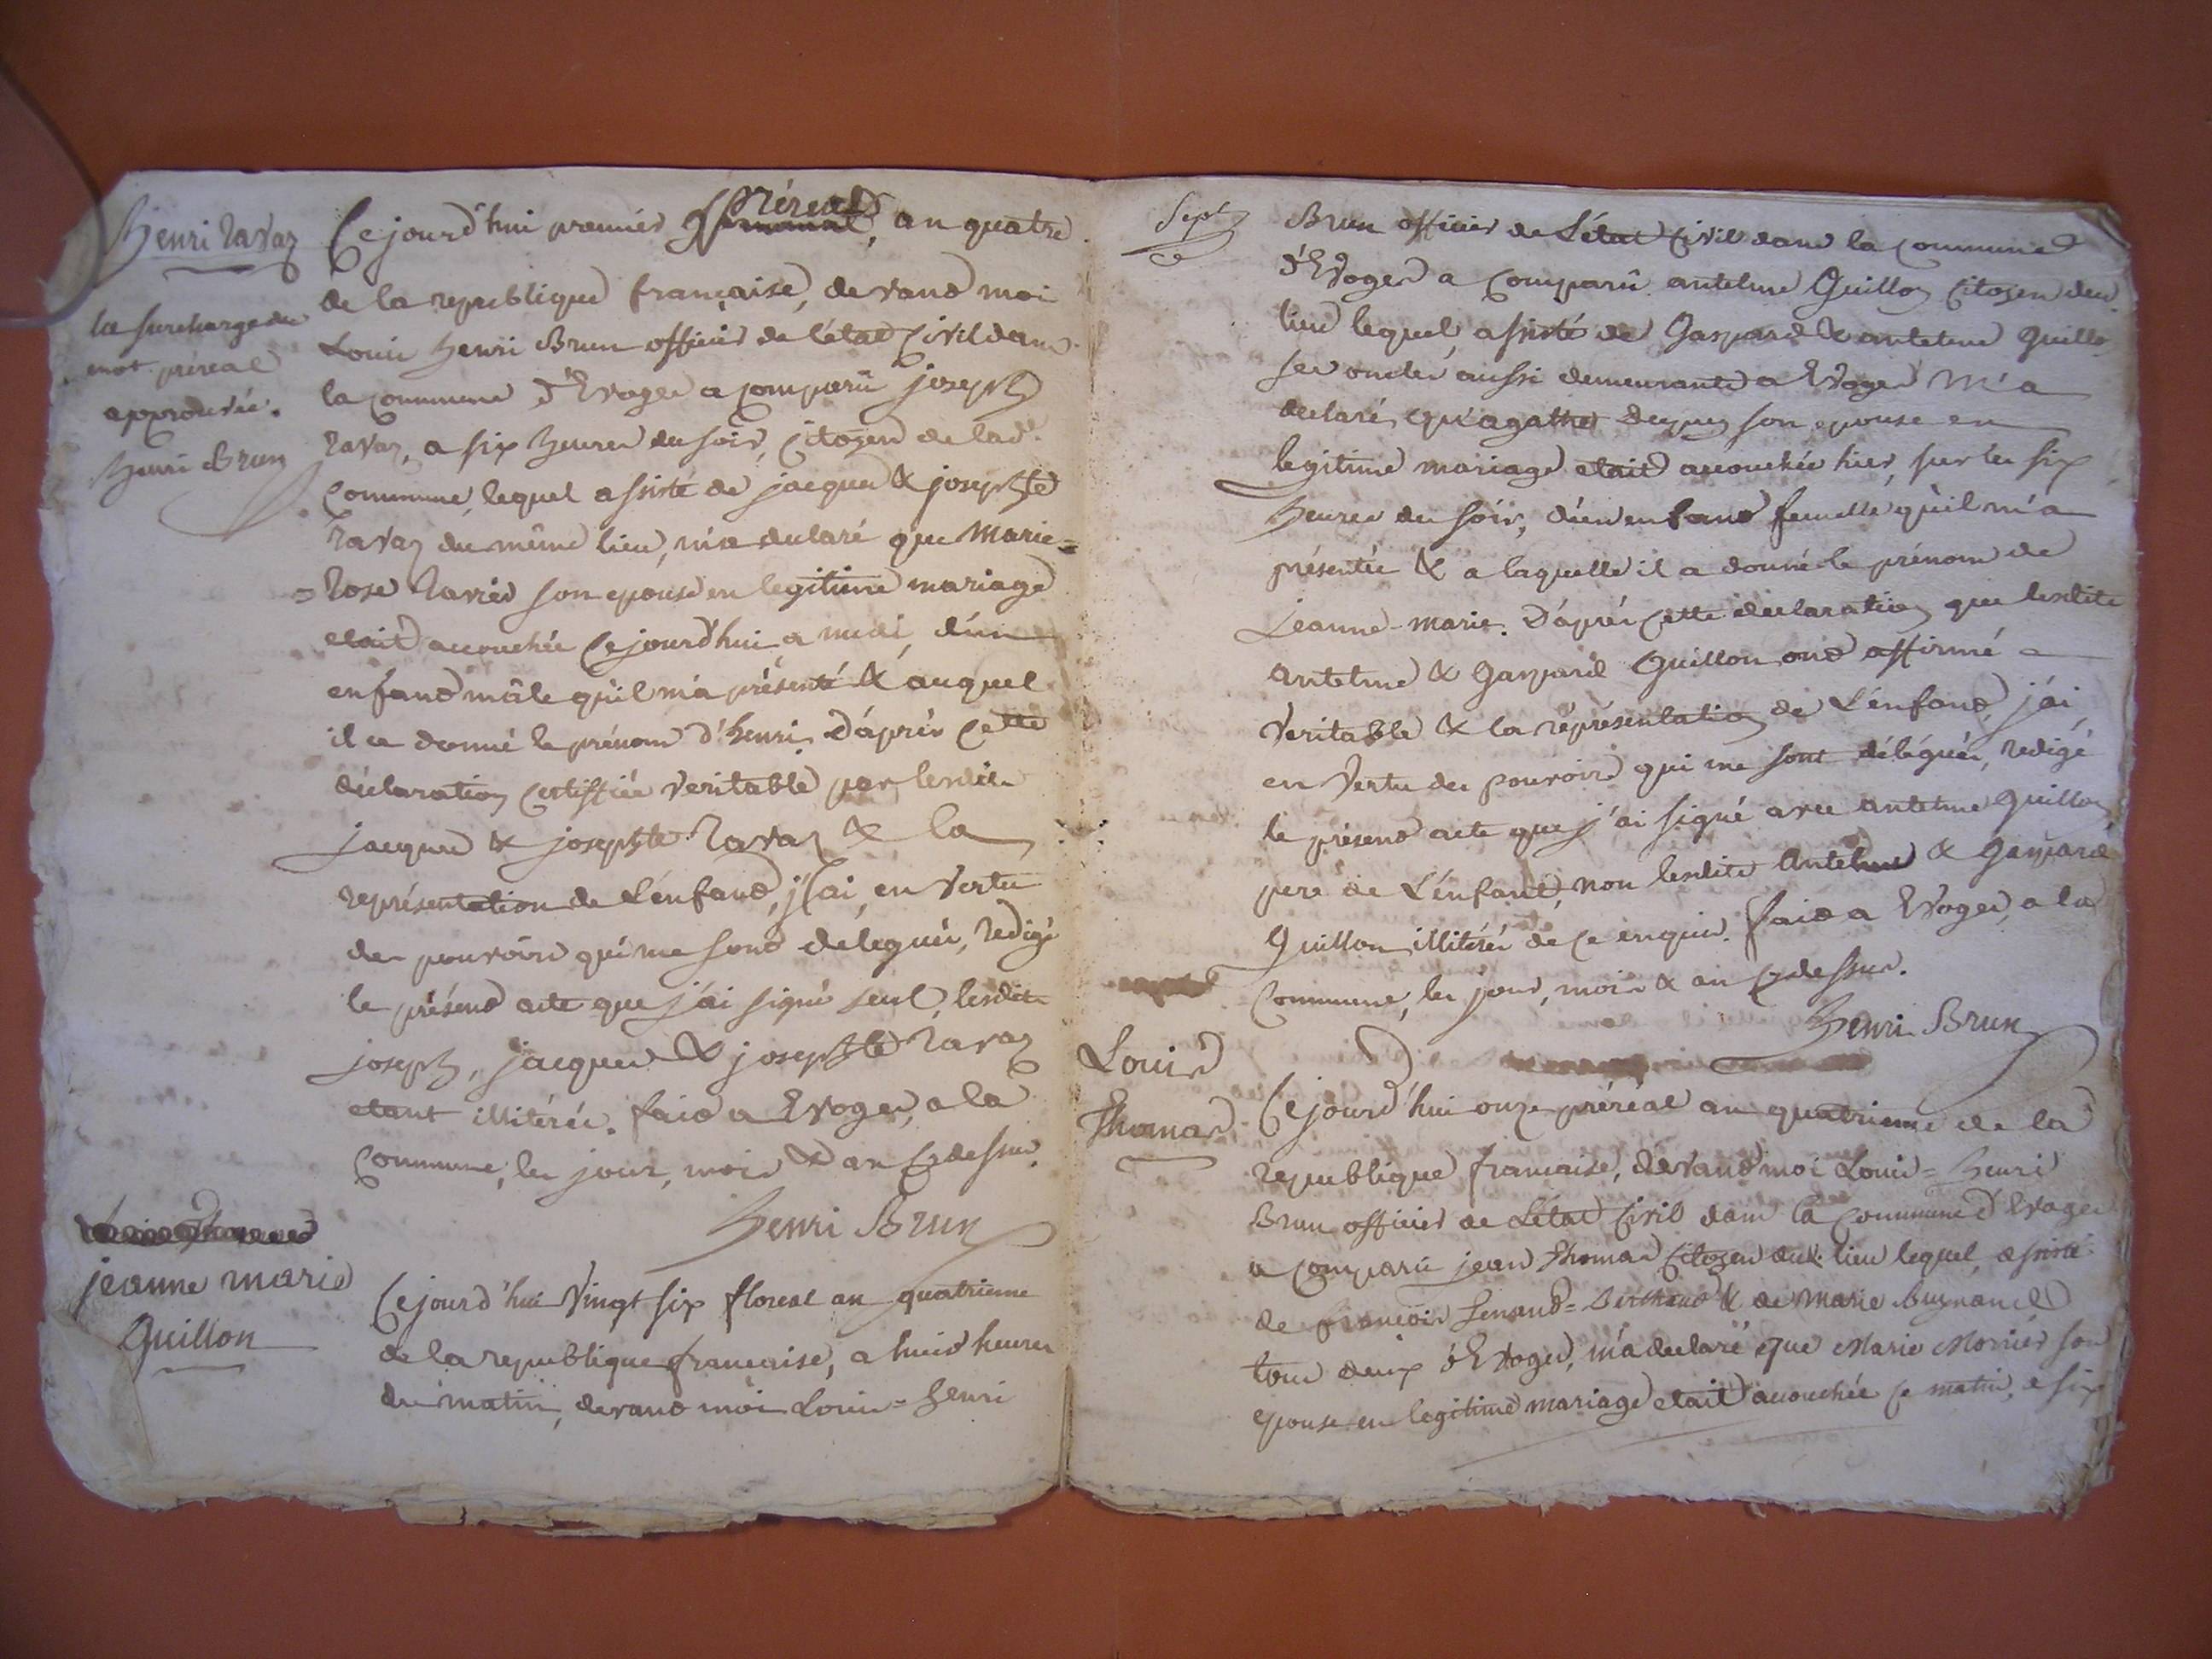 Henri Ravaz
la surcharge du
mot préréal
approuvée.
Henri Brun
Cejourd'hui premier préréal, an quatre
de la republique française, devand moi
Louis Henri Brun officier de l'état Civil dans
la Commune d'Evoges a Comparû joseph
Ravaz, a six heures du soir, Citoyen de lad.
Commune, lequel assisté de jacques & josephte
Ravaz du même lieu, m'a declaré que Marie=
=Rose Ravier son epouse en legitime mariage
etait accouchée Cejourd'hui a midi, d'un
enfand mâle qu'il m'a présenté & auquel
il a donné le prénom d'henri. D'après Cette
déclaration Certiffiée Veritable par lesdits
jacques & josephte Ravaz & la
représentation de L'énfand, j'ai, en Vertu
des pouvoirs qui me sond delegués, redigé
le présend acte que j'ai signé seul, lesdits
joseph, jacques & josephte Ravaz
etant illitérés. faid a Evoges, a la
Commune, les jour, mois & an Cydessus.
Henri Brun
jeanne marie
Guillon
Cejourd'hui Vingt six floreal an quatrieme
de la republique française, a huid heures
du matin, devand moi Louis=henri
Sept
Brun officier de L'état Civil dans la Commune
d'Evoges a Comparû antelme Guillon Citoyen dud.
lieu lequel, assisté de Gaspard & antelme Guillon
ses oncles aussi demeurants a Evoges M'a
declaré qu'agathe son epouse en
legitime mariage etait accouchée hier, sur les six
heures du soir, d'un enfand femelle qu'il m'a
présentée & a laquelle il a donné le prénom de
jeanne-marie. D'après Cette declaration que lesdits
antelme & Gaspard Guillon ond affirmé
Veritable & la représentation de L'énfand, j'ai
en Vertu des pouvoirs qui me sont délégués, redigé
le présend acte que j'ai signé avec antelme Guillon
pere de L'énfant, non lesdits Antelme & Gaspard
Guillon illitérés de Ce enquis. faid a Evoges, a la
Commune, les jour, mois & an Cydessus.
Henri Brun
Louis
Thomas
Cejourd'hui onze préréal an quatrieme de la
republique française, devand moi Louis=henri
Brun officier de L'état Civil dans la Commune d'Evoges
a Comparû jean Thomas Citoyen dud. lieu lequel, assisté
de françois & de Marie
tous deux d'Evoges, m'a declaré que Marie son
epouse en legitime mariage etait accouchée Ce matin, a six